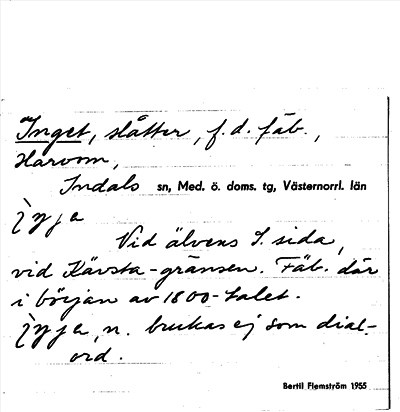 Inget, slåtter, f. d. fäb.,
Indals sn, Med. ö. doms. tg, Västernorrl. län
Vid älvens S. sida,
vid Kävsta-gränsen. Fäb. där
i början av 1800-talet.
n. brukas ej som dial-
ord.
Bertil Flemström 1955